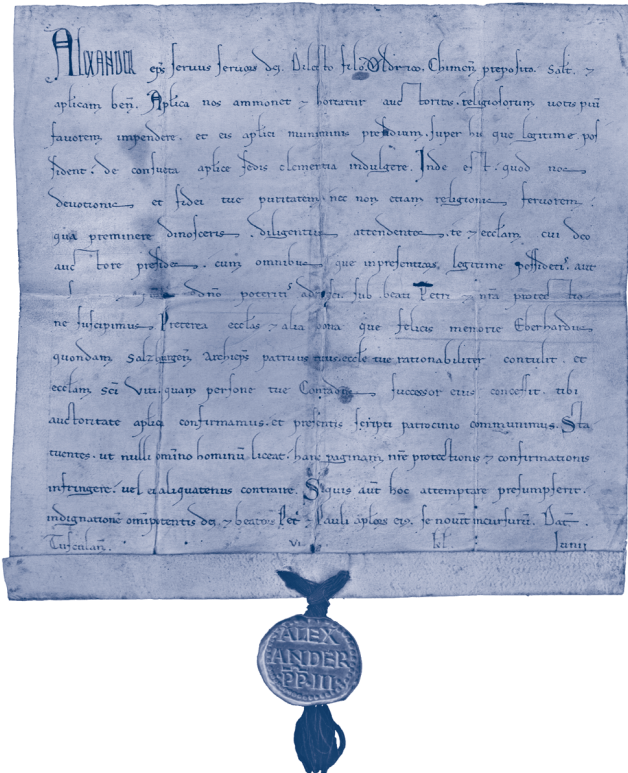 ALEXANDER ep̄s servus servor̄ dei. Dilecto filio Oldrico. Chimen̄ preposito. Salt̄. ⁊
aplicam ben̄. Aplica nos ammonet ⁊ hortatur auctoritas. religiosorum votis piū
favorem impendere. et eis aplici muniminis presidium. super his que legitime pos
sident. de consueta aplice sedis clementia indulgere. Inde est. quod nos
devotionis et fidei tue puritatem nec non etiam religionis fervorem.
qua preminere dinosceris. diligentius attendentes. te ⁊ eccl̄am. cui deo
auctore presides. cum omnibus que inpresentiar̄. legitime possidet. aut
dn̄o poterit sub beati Petri ⁊ n̄ra protectio
ne suscipimus. Preterea eccl̄as ⁊ alia bona que felicis memorie Eberhardus
quondam Salzburgen̄ Archiep̄s patruus tuus eccl̄e tue rationabiliter contulit. et
eccl̄am. sc̄i Viti quam persone tue Conradus successor eius concessit. tibi
auctoritate aplica confirmamus. et presentis scripti patrocinio communimus. Sta
tuentes. ut nulli om̄ino hominū liceat. hanc paginam. n̄re protectionis ⁊ confirmationis
infringere. vel ei aliquatenus contraire. Siquis aut̄ hoc attemptare presumpserit.
indignatione om̄ipotentis dei. ⁊ beator̄ Pet̄ ⁊ Pauli aplor̄ eius. se noverit incursurū. Dat̄.
Tusculan̄. vi. kl̄. Junii
ALEX
ANDER
PP. III